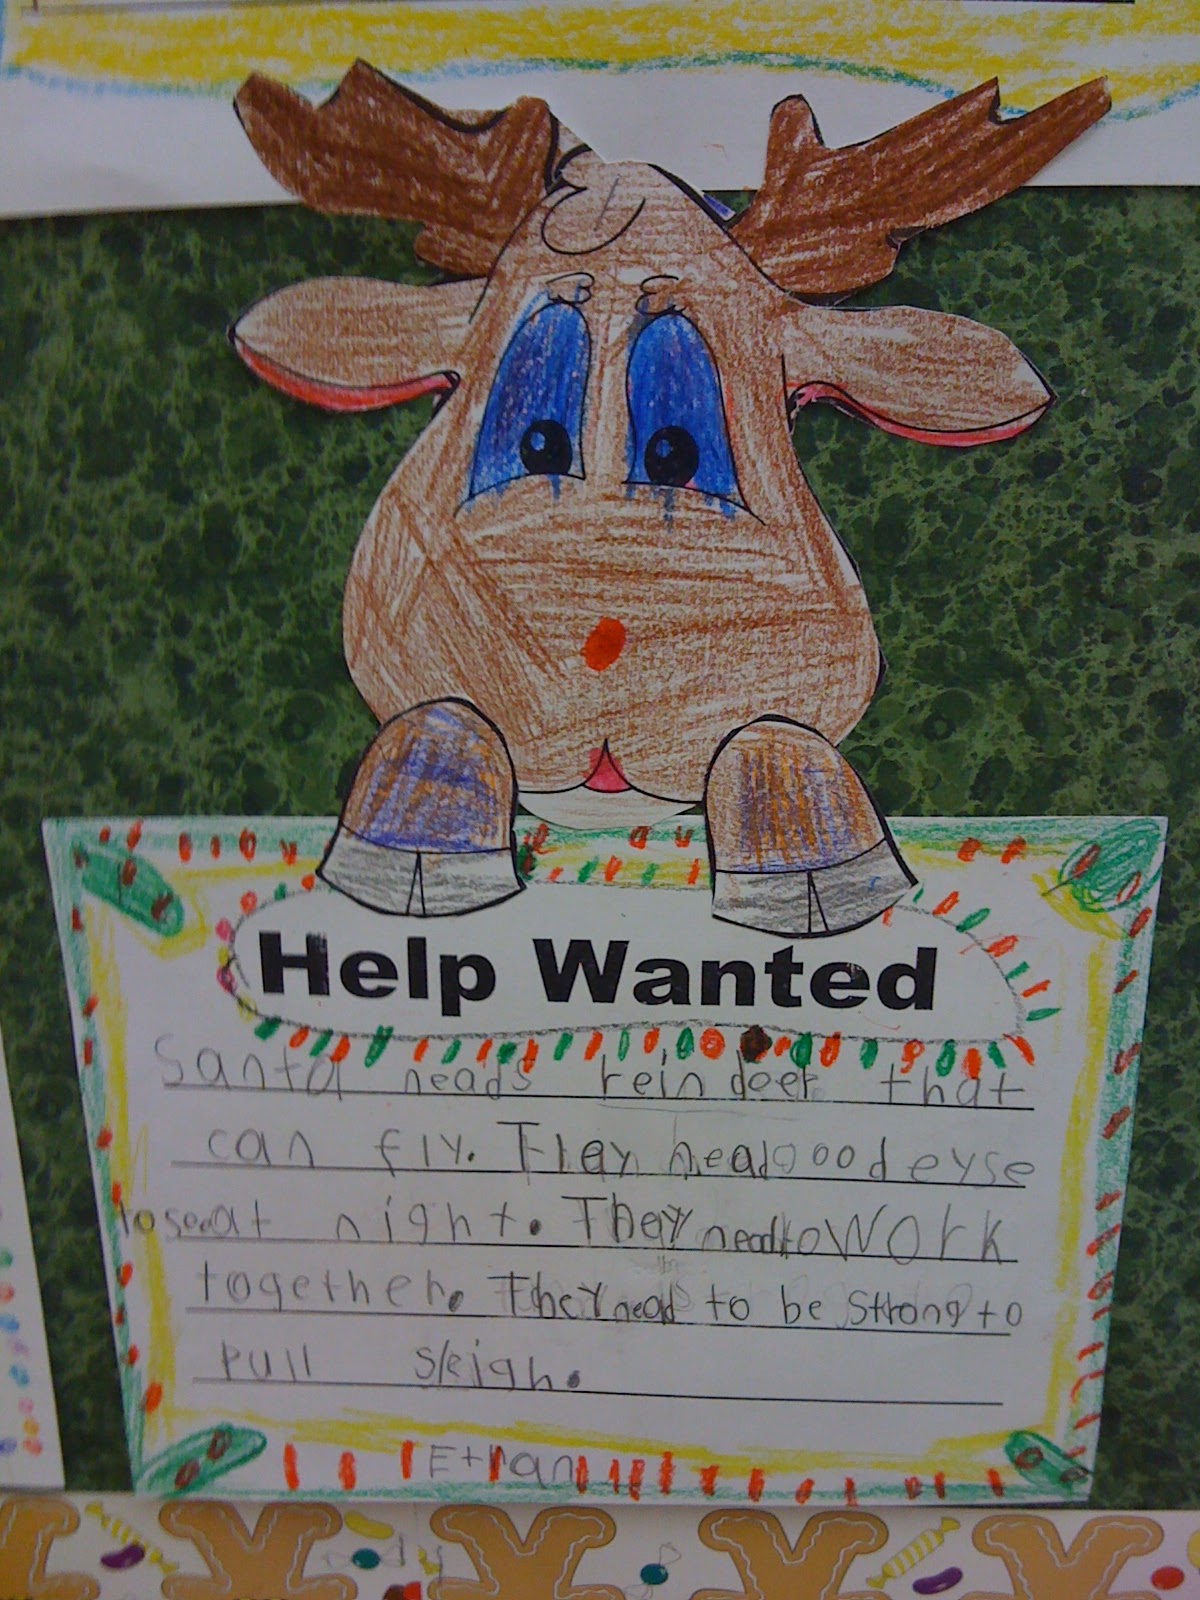 Help Wanted
Santa neads reindeer that
can fly. They nead good eyse
to see at night. They nead to work
together. They nead to be strong to
pull sleigh.
Ethan